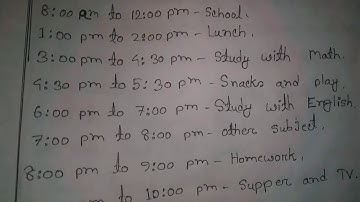 8:00 am to 12:00 pm - School.
1:00 pm to 2:00 pm - Lunch.
3:00 pm to 4:30 pm - Study with Math.
4:30 pm to 5:30 pm - Snacks and play.
6:00 pm to 7:00 pm - Study with English.
7:00 pm to 8:00 pm - other subject.
8:00 pm to 9:00 pm - Homework.
pm to 10:00 pm - Supper and TV.